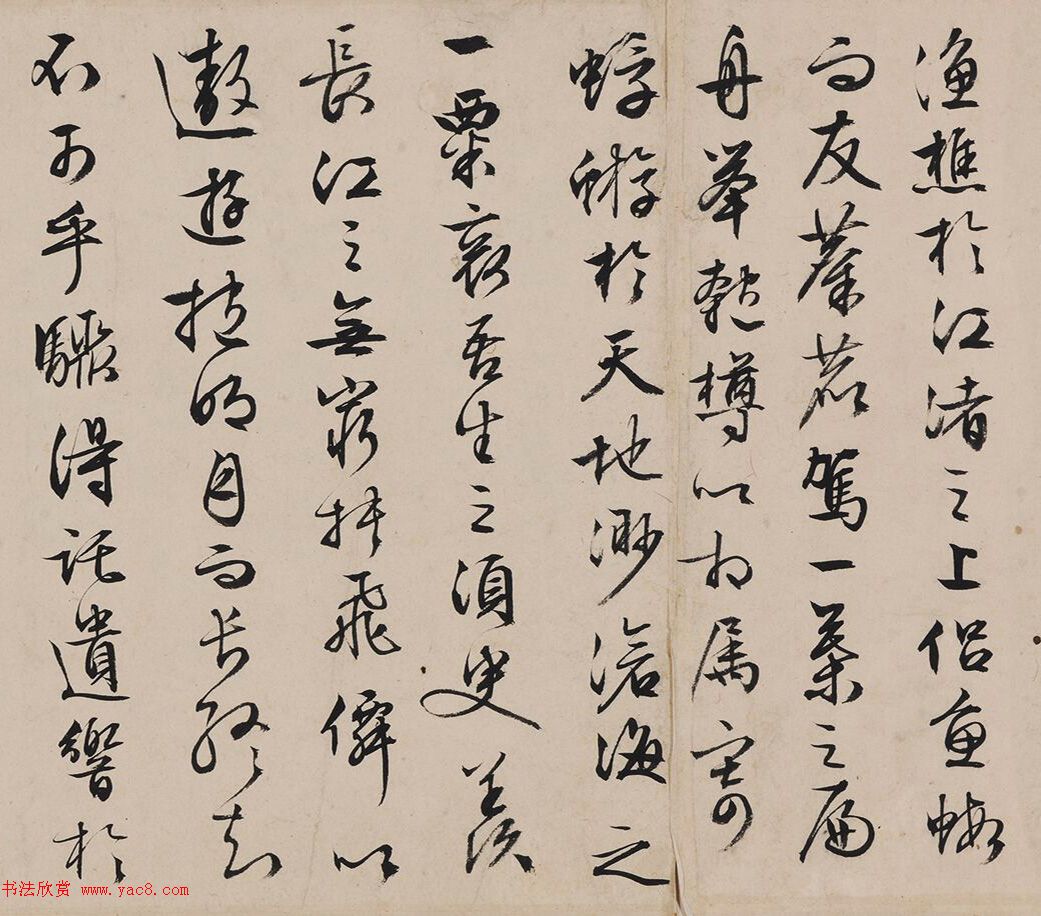 漁樵於江渚之上侶魚蝦
而友麋鹿駕一葉之扁
舟舉匏樽以相属寄
蜉蝣於天地渺滄海之
一粟哀吾生之須臾羨
長江之無窮挾飛僊以
遨遊抱明月而長終知
不可乎驟得託遺響於
书法欣赏 www.yac8.com